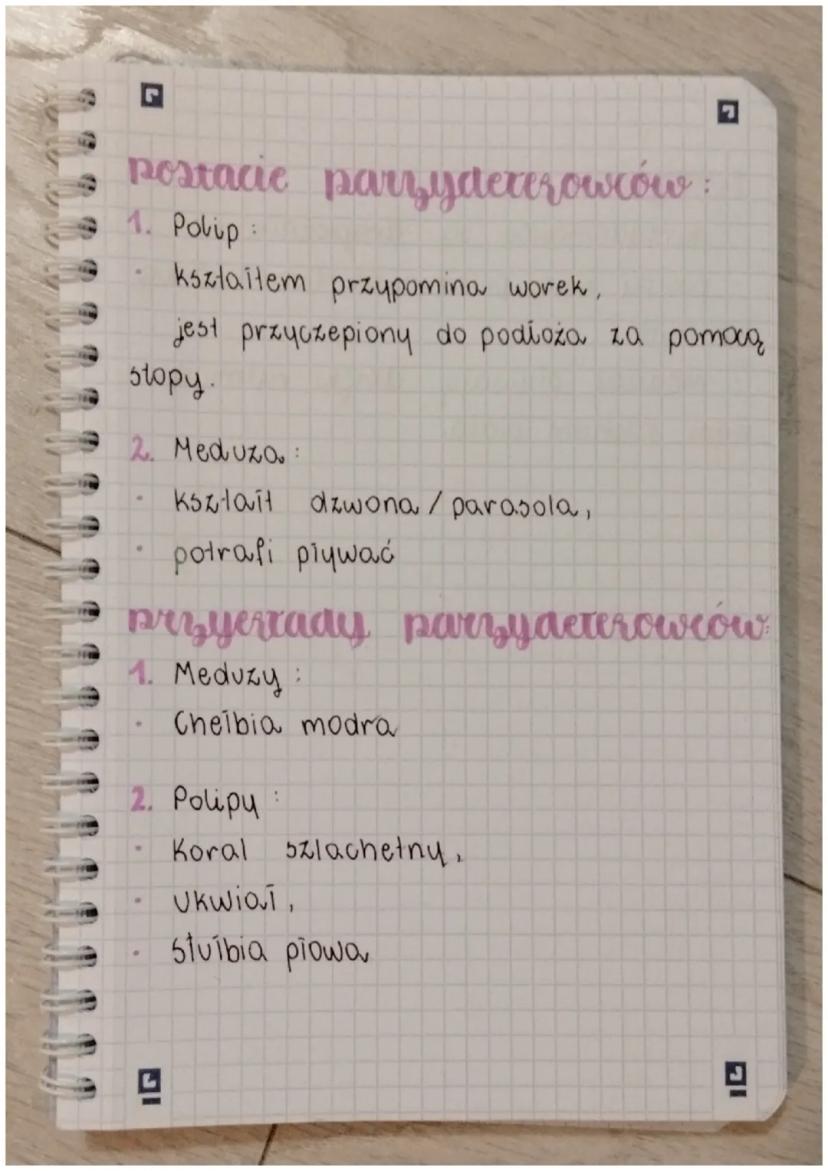 postacie parzydełkowców:
1. Polip:
• kształtem przypomina worek,
jest przyczepiony do podłoża za pomocą
stopy.
2. Meduza:
• kształt dzwona / parasola,
• potrafi pływać
przykłady parzydełkowców:
1. Meduzy:
• Chełbia modra
2. Polipy:
• Koral szlachetny,
• Ukwiał,
• Stułbia płowa